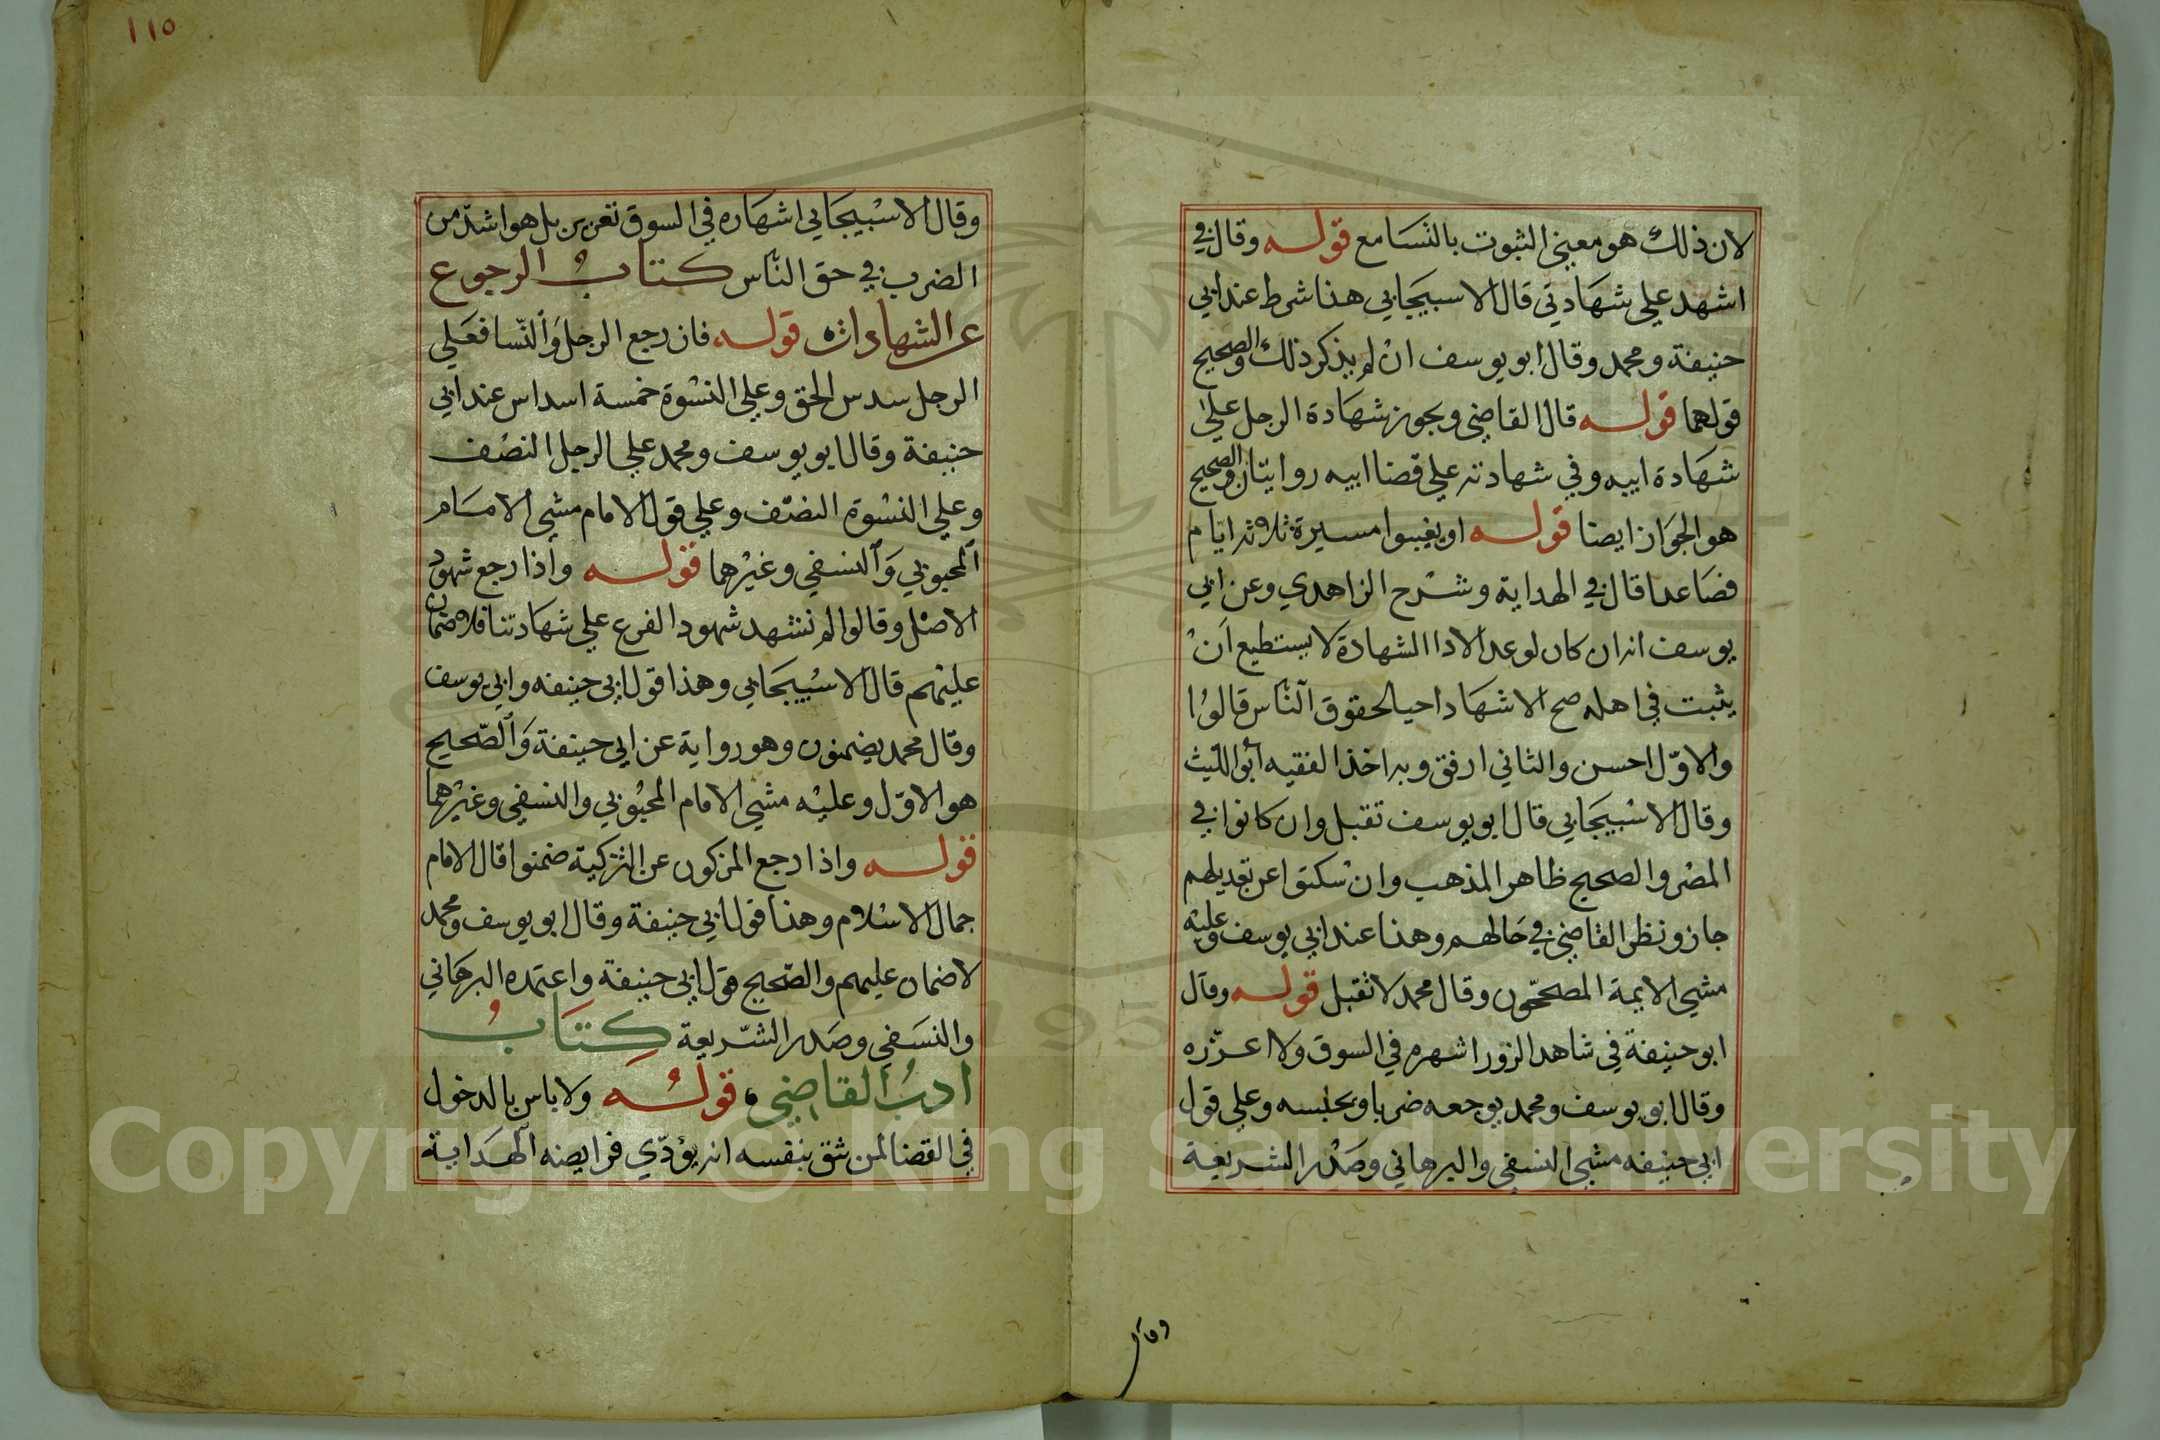 لان ذلك هو معنى الثبوت بالتسامع قوله وقال في
اشهد على شهادتي قال الاسبيجابي هذا شرط عند ابي
حنيفة ومحمد وقال ابو يوسف ان لم يذكر ذلك والصحيح
قولهما قوله قال القاضي ويجوز شهادة الرجل على
شهادة ابيه وفي شهادته على قضا ابيه روايتان والصحيح
هو الجواز ايضا قوله او يغيبوا مسيرة ثلاثة ايام
فصاعدا قال في الهداية وشرح الزاهدي وعن ابي
يوسف انه ان كان لو غدا لادا الشهادة لا يستطيع ان
يثبت في اهله صح الاشهاد احيا لحقوق الناس قالوا
والاول احسن والثاني ارفق وبه اخذ الفقيه ابو الليث
وقال الاسبيجابي قال ابو يوسف تقبل وان كانوا في
المصر والصحيح ظاهر المذهب وان سكتوا عن تعديلهم
جاز ونظر القاضي في حالهم وهذا عند ابي يوسف وعليه
مشى الايمة المصححون وقال محمد لا تقبل قوله وقال
ابو حنيفة في شاهد الزور اشهره في السوق ولا اعزره
وقال ابو يوسف ومحمد يوجعه ضربا ويحبسه وعلى قول
ابي حنيفه مشى النسفي والبرهاني وصدر الشريعة
وقال
١١٥
وقال الاسبيجابي اشهاره في السوق تعزير بل هو اشد من
الضرب في حق الناس كتاب الرجوع
عن الشهادات قوله فان رجع الرجل والنسا فعلى
الرجل سدس الحق وعلى النسوة خمسة اسداس عند ابي
حنيفة وقال ابو يوسف ومحمد على الرجل النصف
وعلى النسوة النصف وعلى قول الامام مشى الامام
المحبوبي والنسفي وغيرهما قوله واذا رجع شهود
الاصل وقالوا لم نشهد شهود الفرع على شهادتنا فلا ضمان
عليهم قال الاسبيجابي وهذا قول ابي حنيفه وابي يوسف
وقال محمد يضمنون وهو رواية عن ابي حنيفة والصحيح
هو الاول وعليه مشى الامام المحبوبي والنسفي وغيرهما
قوله واذا رجع المزكون عن التزكية ضمنوا قال الامام
جمال الاسلام وهذا قول ابي حنيفة وقال ابو يوسف ومحمد
لا ضمان عليهم والصحيح قول ابي حنيفة واعتمده البرهاني
والنسفي وصدر الشريعة كتاب
ادب القاضي قوله ولا باس بالدخول
في القضا لمن يثق بنفسه انه يؤدي فرايضه الهداية
Copyright © King Saud University